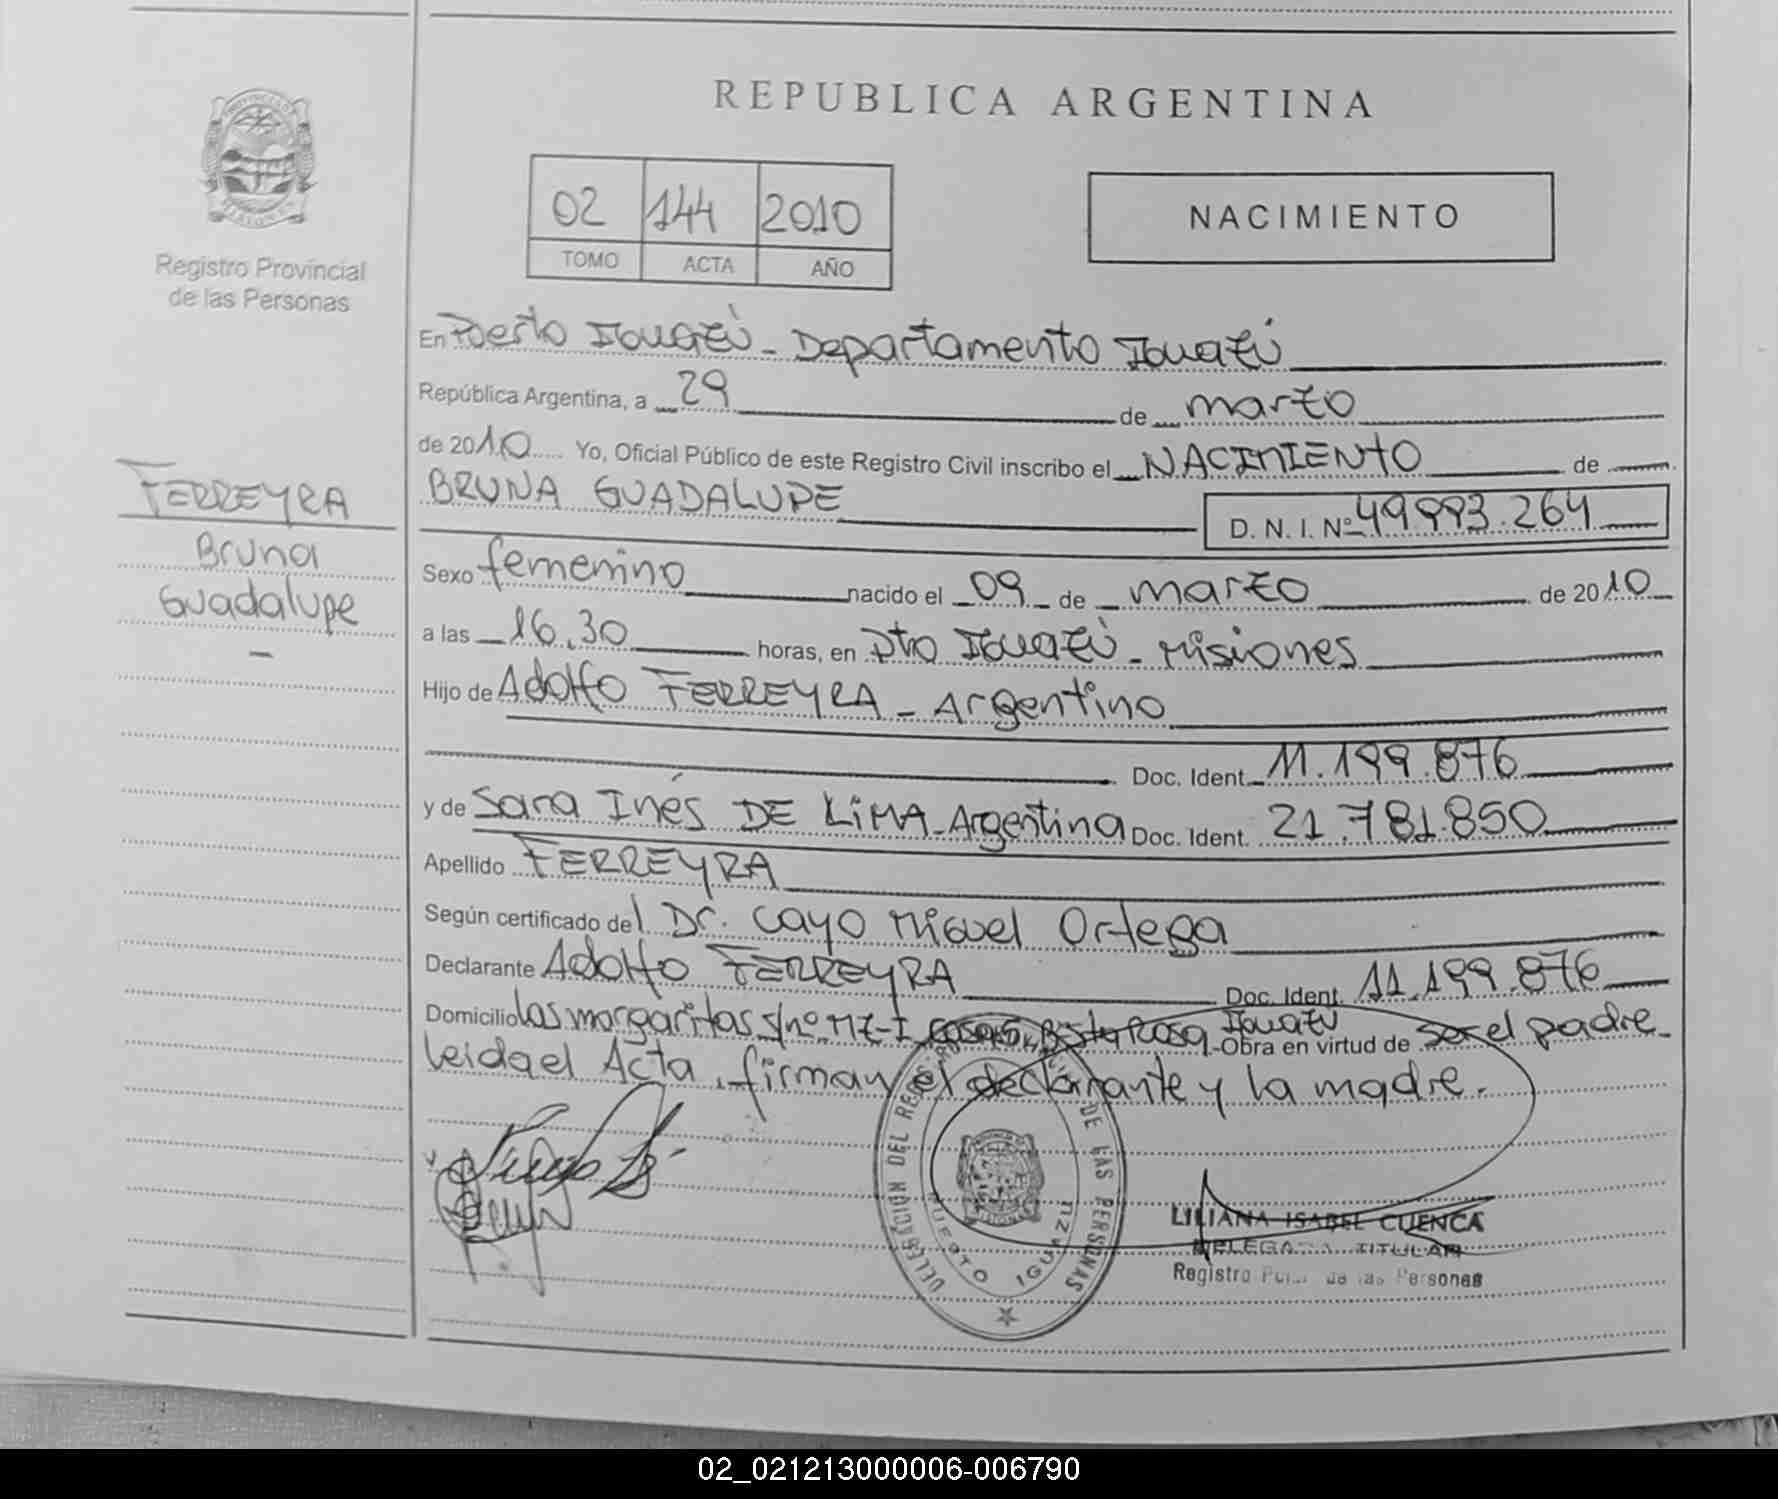 REPUBLICA ARGENTINA
02 144 2010
TOMO ACTA AÑO
NACIMIENTO
Registro Provincial
de las Personas
En Puerto Iguazú - Departamento Iguazú
República Argentina, a 29 de marzo
de 2010 Yo, Oficial Público de este Registro Civil inscribo el NACIMIENTO de
BRUNA GUADALUPE D. N. I. Nº 49.993.264
FERREYRA
Bruna
Guadalupe
Sexo femenino nacido el 09 de marzo de 2010
a las 16,30 horas, en Pto Iguazú - Misiones
Hijo de Adolfo FERREYRA - Argentino
Doc. Ident. 11.199.876
y de Sara Inés DE LIMA - Argentina Doc. Ident. 21.781.850
Apellido FERREYRA
Según certificado del Dr. Cayo Miguel Ortega
Declarante Adolfo FERREYRA Doc. Ident. 11.199.876
Domicilio las margaritas s/nº Mz-I casa 5, Bº Sta Rosa Iguazú Obra en virtud de ser el padre
leida el Acta, firman el declarante y la madre.
DELEGACION DEL REGISTRO DE LAS PERSONAS
PUERTO IGUAZU
LILIANA ISABEL CUENCA
DELEGADA TITULAR
Registro de las Personas
02_021213000006-006790